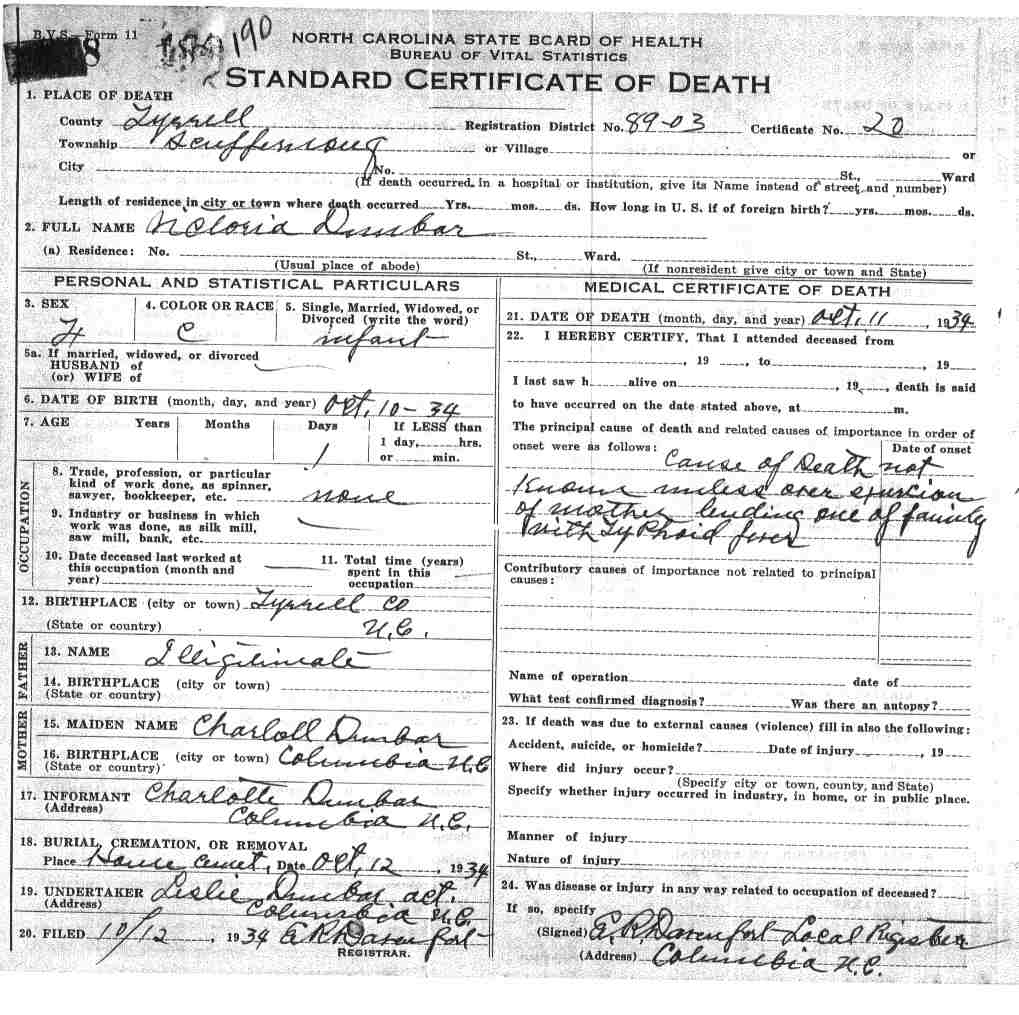 B.V.S. Form 11
8
190
NORTH CAROLINA STATE BOARD OF HEALTH
BUREAU OF VITAL STATISTICS
STANDARD CERTIFICATE OF DEATH
1. PLACE OF DEATH
County Tyrrell Registration District No. 89-03 Certificate No. 20
Township Scuffernong or Village or
City No. St., Ward
(If death occurred in a hospital or institution, give its Name instead of street and number)
Length of residence in city or town where death occurred Yrs. mos. ds. How long in U. S. if of foreign birth? yrs. mos. ds.
2. FULL NAME Victoria Dunbar
(a) Residence: No. St., Ward.
(Usual place of abode) (If nonresident give city or town and State)
PERSONAL AND STATISTICAL PARTICULARS
3. SEX 4. COLOR OR RACE 5. Single, Married, Widowed, or
Divorced (write the word)
F C infant
5a. If married, widowed, or divorced
HUSBAND of
(or) WIFE of
6. DATE OF BIRTH (month, day, and year) Oct, 10-34
7. AGE Years Months Days If LESS than
1 day, hrs.
1 or min.
OCCUPATION
8. Trade, profession, or particular
kind of work done, as spinner,
sawyer, bookkeeper, etc. none
9. Industry or business in which
work was done, as silk mill,
saw mill, bank, etc.
10. Date deceased last worked at
this occupation (month and
year)
11. Total time (years)
spent in this
occupation
12. BIRTHPLACE (city or town) Tyrrell Co
(State or country) N.C.
FATHER
13. NAME Illigitimate
14. BIRTHPLACE (city or town)
(State or country)
MOTHER
15. MAIDEN NAME Charloll Dunbar
16. BIRTHPLACE (city or town) Columbia N.C
(State or country)
17. INFORMANT Charlotte Dunbar
(Address) Columbia N.C.
18. BURIAL, CREMATION, OR REMOVAL
Place Home cemet, Date Oct, 12, 1934
19. UNDERTAKER Leslie Dunbar act.
(Address) Columbia N.C.
20. FILED 10/12, 1934 E.R. Davenport
REGISTRAR.
MEDICAL CERTIFICATE OF DEATH
21. DATE OF DEATH (month, day, and year) Oct, 11, 1934
22. I HEREBY CERTIFY, That I attended deceased from
, 19 , to , 19
I last saw h alive on , 19 , death is said
to have occurred on the date stated above, at m.
The principal cause of death and related causes of importance in order of
onset were as follows: Date of onset
Cause of Death not
Known unless over
of mother one of family
with TyPhoid fever
Contributory causes of importance not related to principal
causes:
Name of operation date of
What test confirmed diagnosis? Was there an autopsy?
23. If death was due to external causes (violence) fill in also the following:
Accident, suicide, or homicide? Date of injury , 19
Where did injury occur?
(Specify city or town, county, and State)
Specify whether injury occurred in industry, in home, or in public place.
Manner of injury
Nature of injury
24. Was disease or injury in any way related to occupation of deceased?
If so, specify
(Signed) E. R. Davenport Local Register
(Address) Columbia N.C.